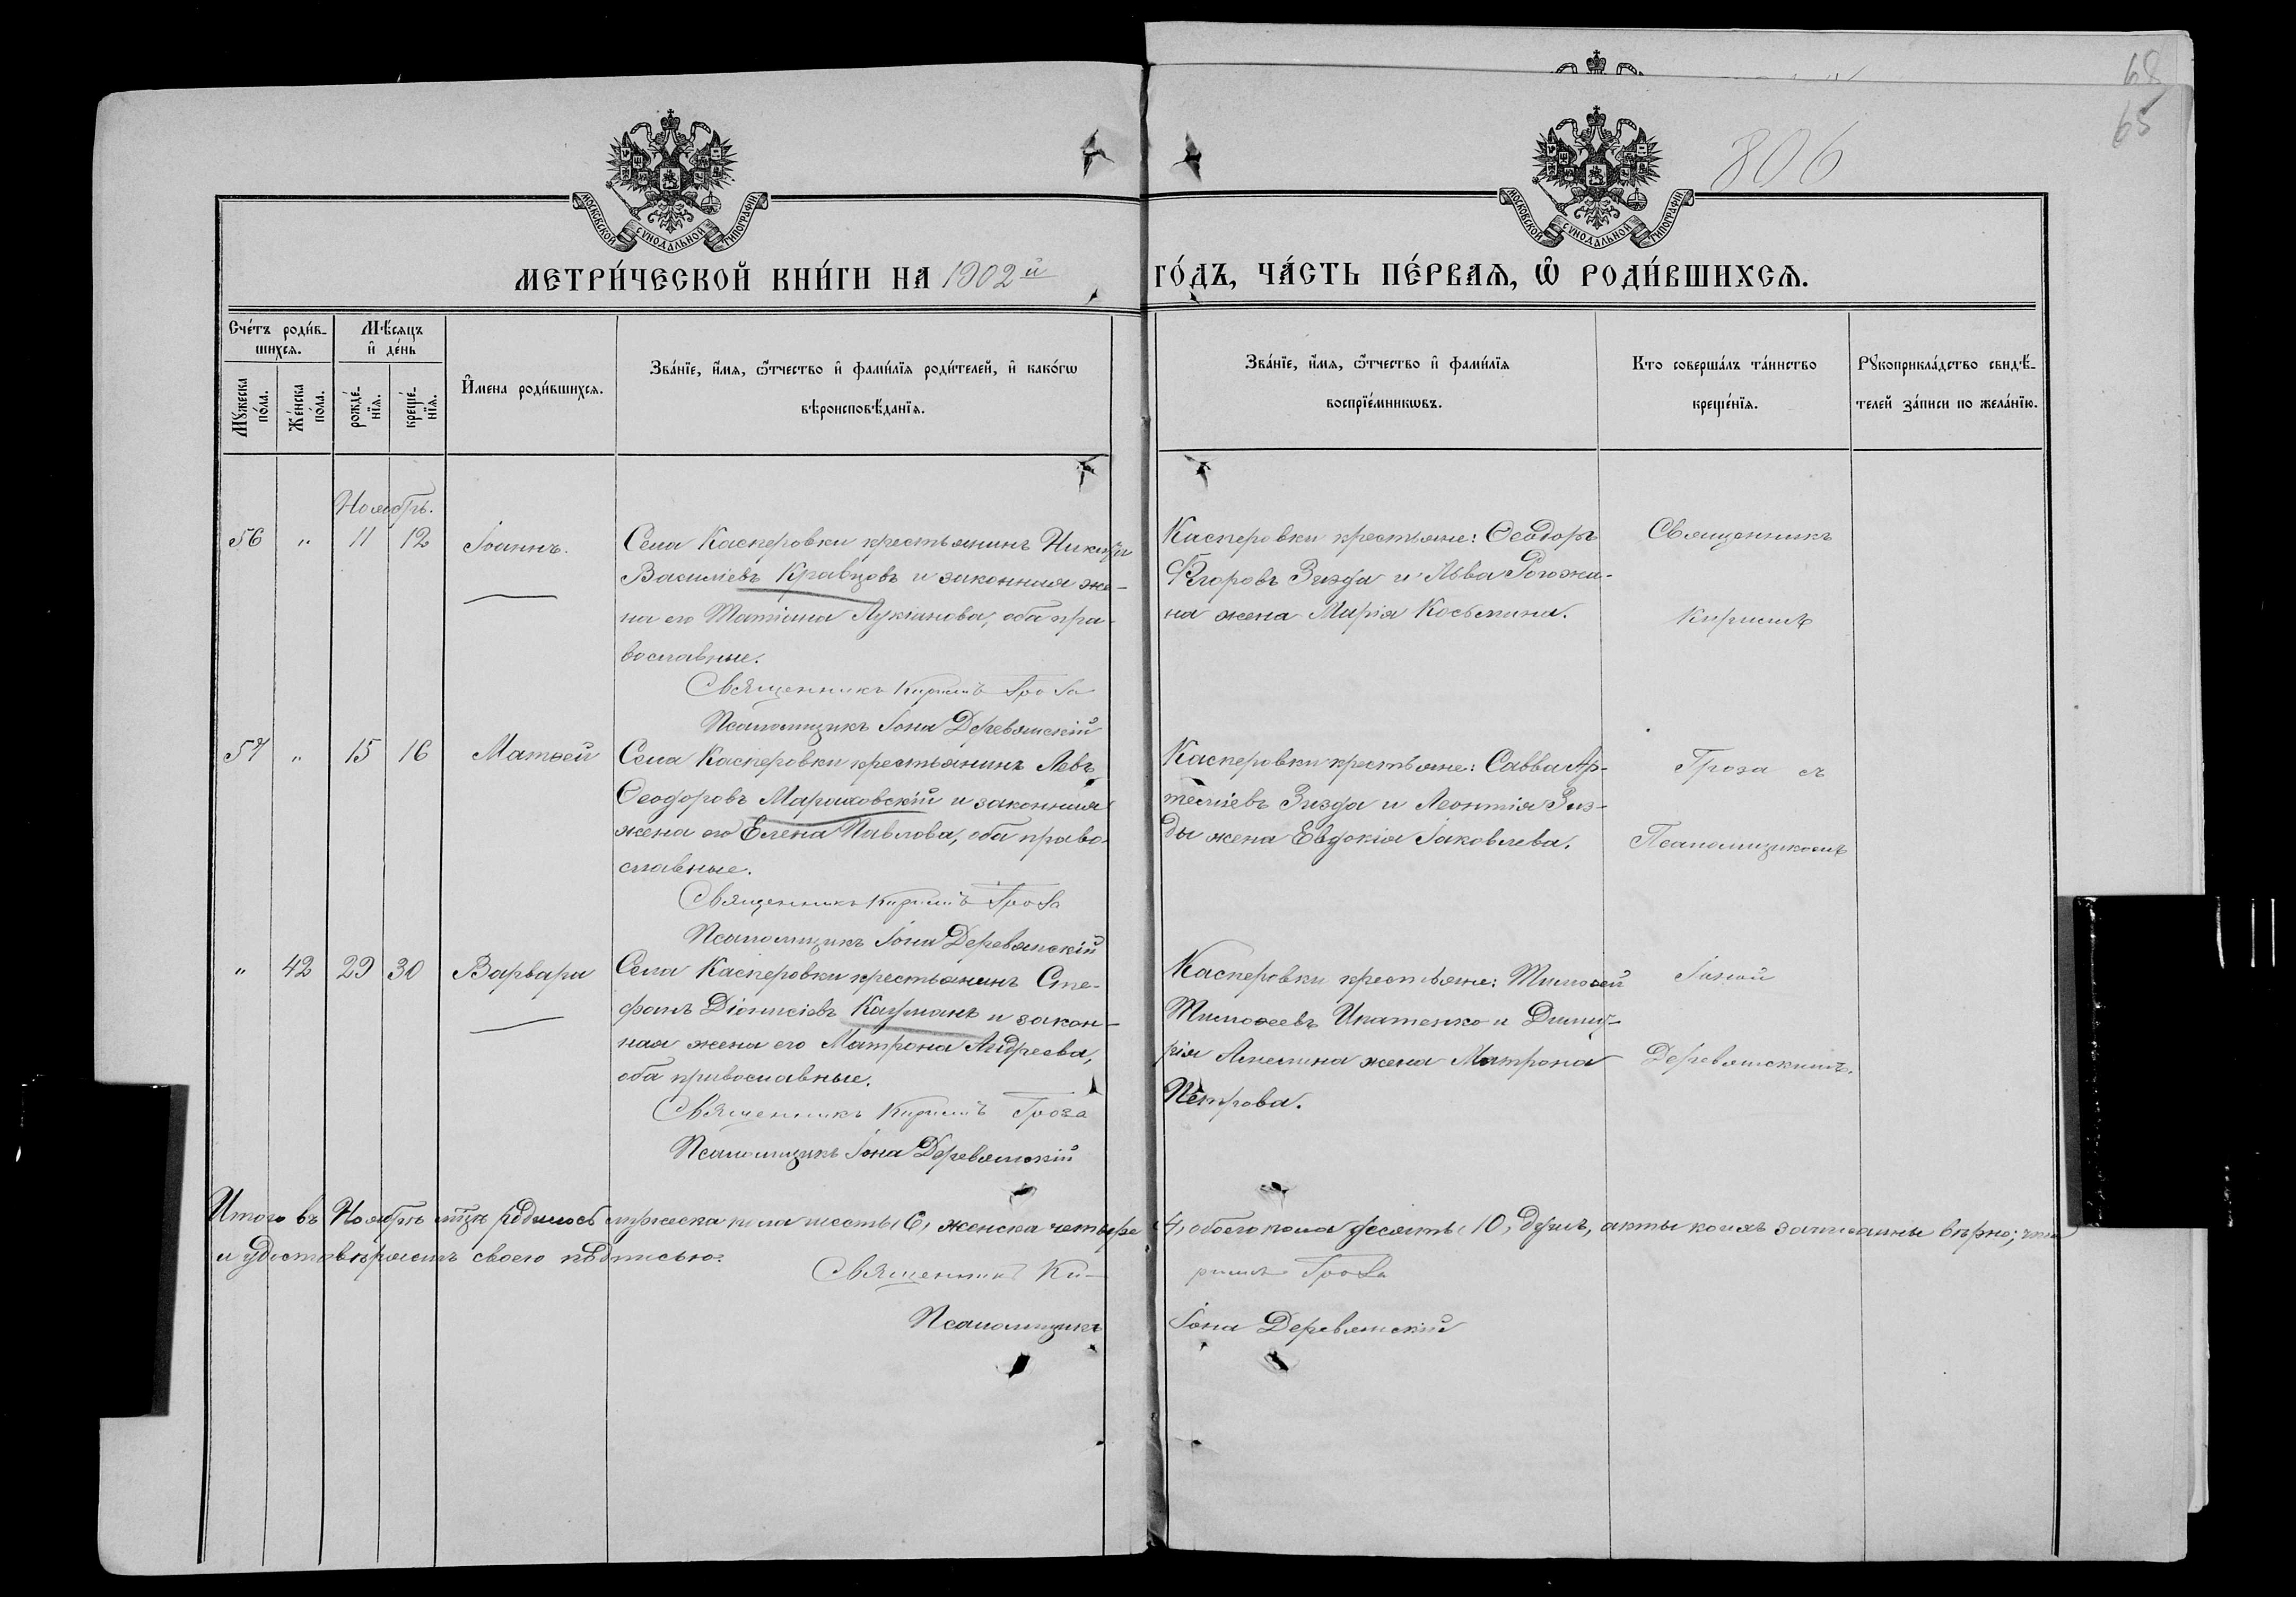 68
65
806
МОСКОВСКОЙ СѴНОДАЛЬНОЙ ТИПОГРАФІИ
МОСКОВСКОЙ СѴНОДАЛЬНОЙ ТИПОГРАФІИ
МЕТРИ́ЧЕСКОЙ КНИ́ГИ НА 1902й
ГО́ДЪ, ЧА́СТЬ ПЕ́РВАЯ, Ѡ РОДИ́ВШИХСЯ.
Сче́тъ роди́вшихся.
Мѣ́сяцъ и де́нь
Мꙋ́жеска по́ла.
Же́нска по́ла.
рожде́нїя.
креще́нїя.
И́мена роди́вшихся.
Зва́нїе, и́мя, ѻ́тчество и фами́лїя роди́телей, и како́гѡ
вѣроисповѣ́данїя.
Зва́нїе, и́мя, ѻ́тчество и фами́лїя
воспрїе́мникѡвъ.
Кто соверша́лъ та́инство
креще́нїя.
Рꙋкоприкла́дство свидѣ́-
телей за́писи по жела́нїю.
Ноябрь.
56 " 11 12 Іоаннъ.
Села Касперовки крестьянинъ Никита
Василіевъ Кравцовъ и законная же-
на его Татіана Лукіанова, оба пра-
вославные.
Священникъ Кириллъ Гроза
Псаломщикъ Іона Деревянскій
Касперовки крестьяне: Ѳеодоръ
Егоровъ Зизда и Льва Рогожи-
на жена Марія Косьмина.
Священникъ
Кириллъ
57 " 15 16 Матѳей
Села Касперовки крестьянинъ Левъ
Ѳеодоровъ Мараховскій и законная
жена его Елена Павлова, оба право-
славные.
Священникъ Кириллъ Гроза
Псаломщикъ Іона Деревянскій
Касперовки крестьяне: Савва Ар-
теміевъ Зизда и Леонтія Зиз-
ды жена Евдокія Іаковлева.
Гроза съ
Псаломщикомъ
" 42 29 30 Варвара
Села Касперовки крестьянинъ Сте-
фанъ Діонисіевъ Кацманъ и закон-
ная жена его Матрона Андреева,
оба православные.
Священникъ Кириллъ Гроза
Псаломщикъ Іона Деревянскій
Касперовки крестьяне: Тимоѳей
Тимоѳеевъ Ипатенко и Димит-
рія жена Матрона
Петрова.
Іоной
Деревянскимъ.
Итого въ Ноябрѣ мцѣ родилось мужеска пола шесть, 6, женска четыре 4, обоего пола десять, 10, душъ, акты коихъ записаны вѣрно; что
и удостовѣряемъ своею подписью:
Священникъ Ки-
риллъ Гроза
Псаломщикъ Іона Деревянскій